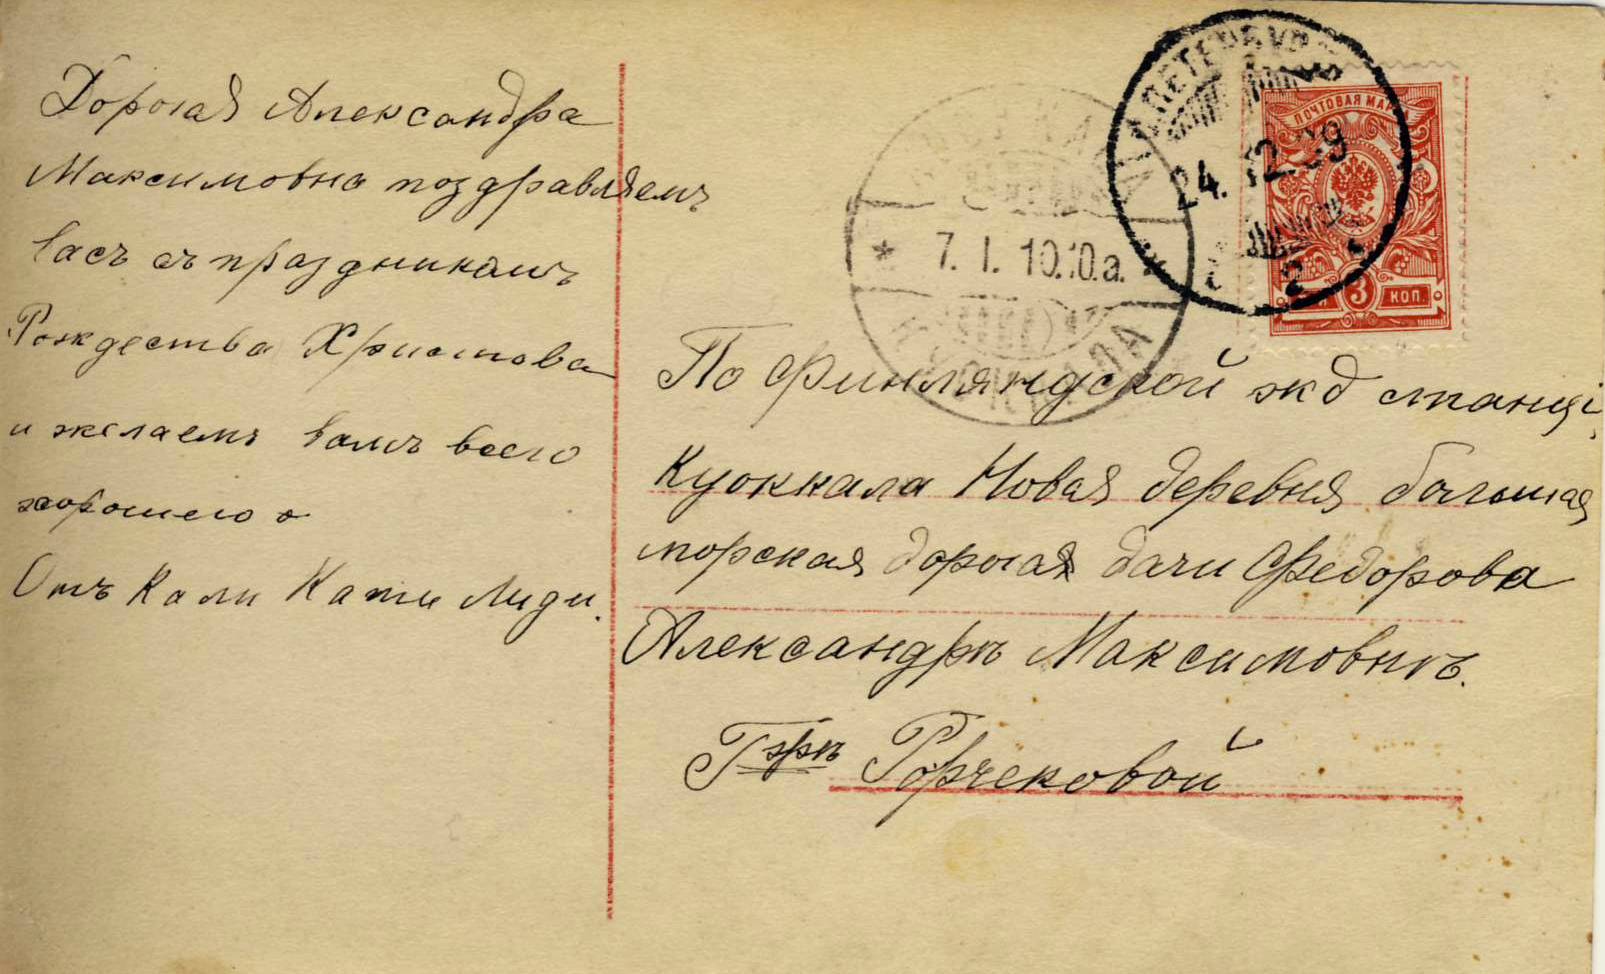 Дорогая Александра
Максимовна поздравляемъ
васъ съ праздникомъ
Рождества Христова
и желаемъ вамъ всего
хорошего
Отъ Коли Кати Лиди.
С.ПЕТЕРБУРГ
24.12.09
2
ПОЧТОВАЯ МАР
3 КОП.
7. I. 10.10.a.
По Финляндской жд станція
Куоккала Новая деревня большая
морская дорогая дачи Федорова
Александръ Максимовнъ.
Гжѣ